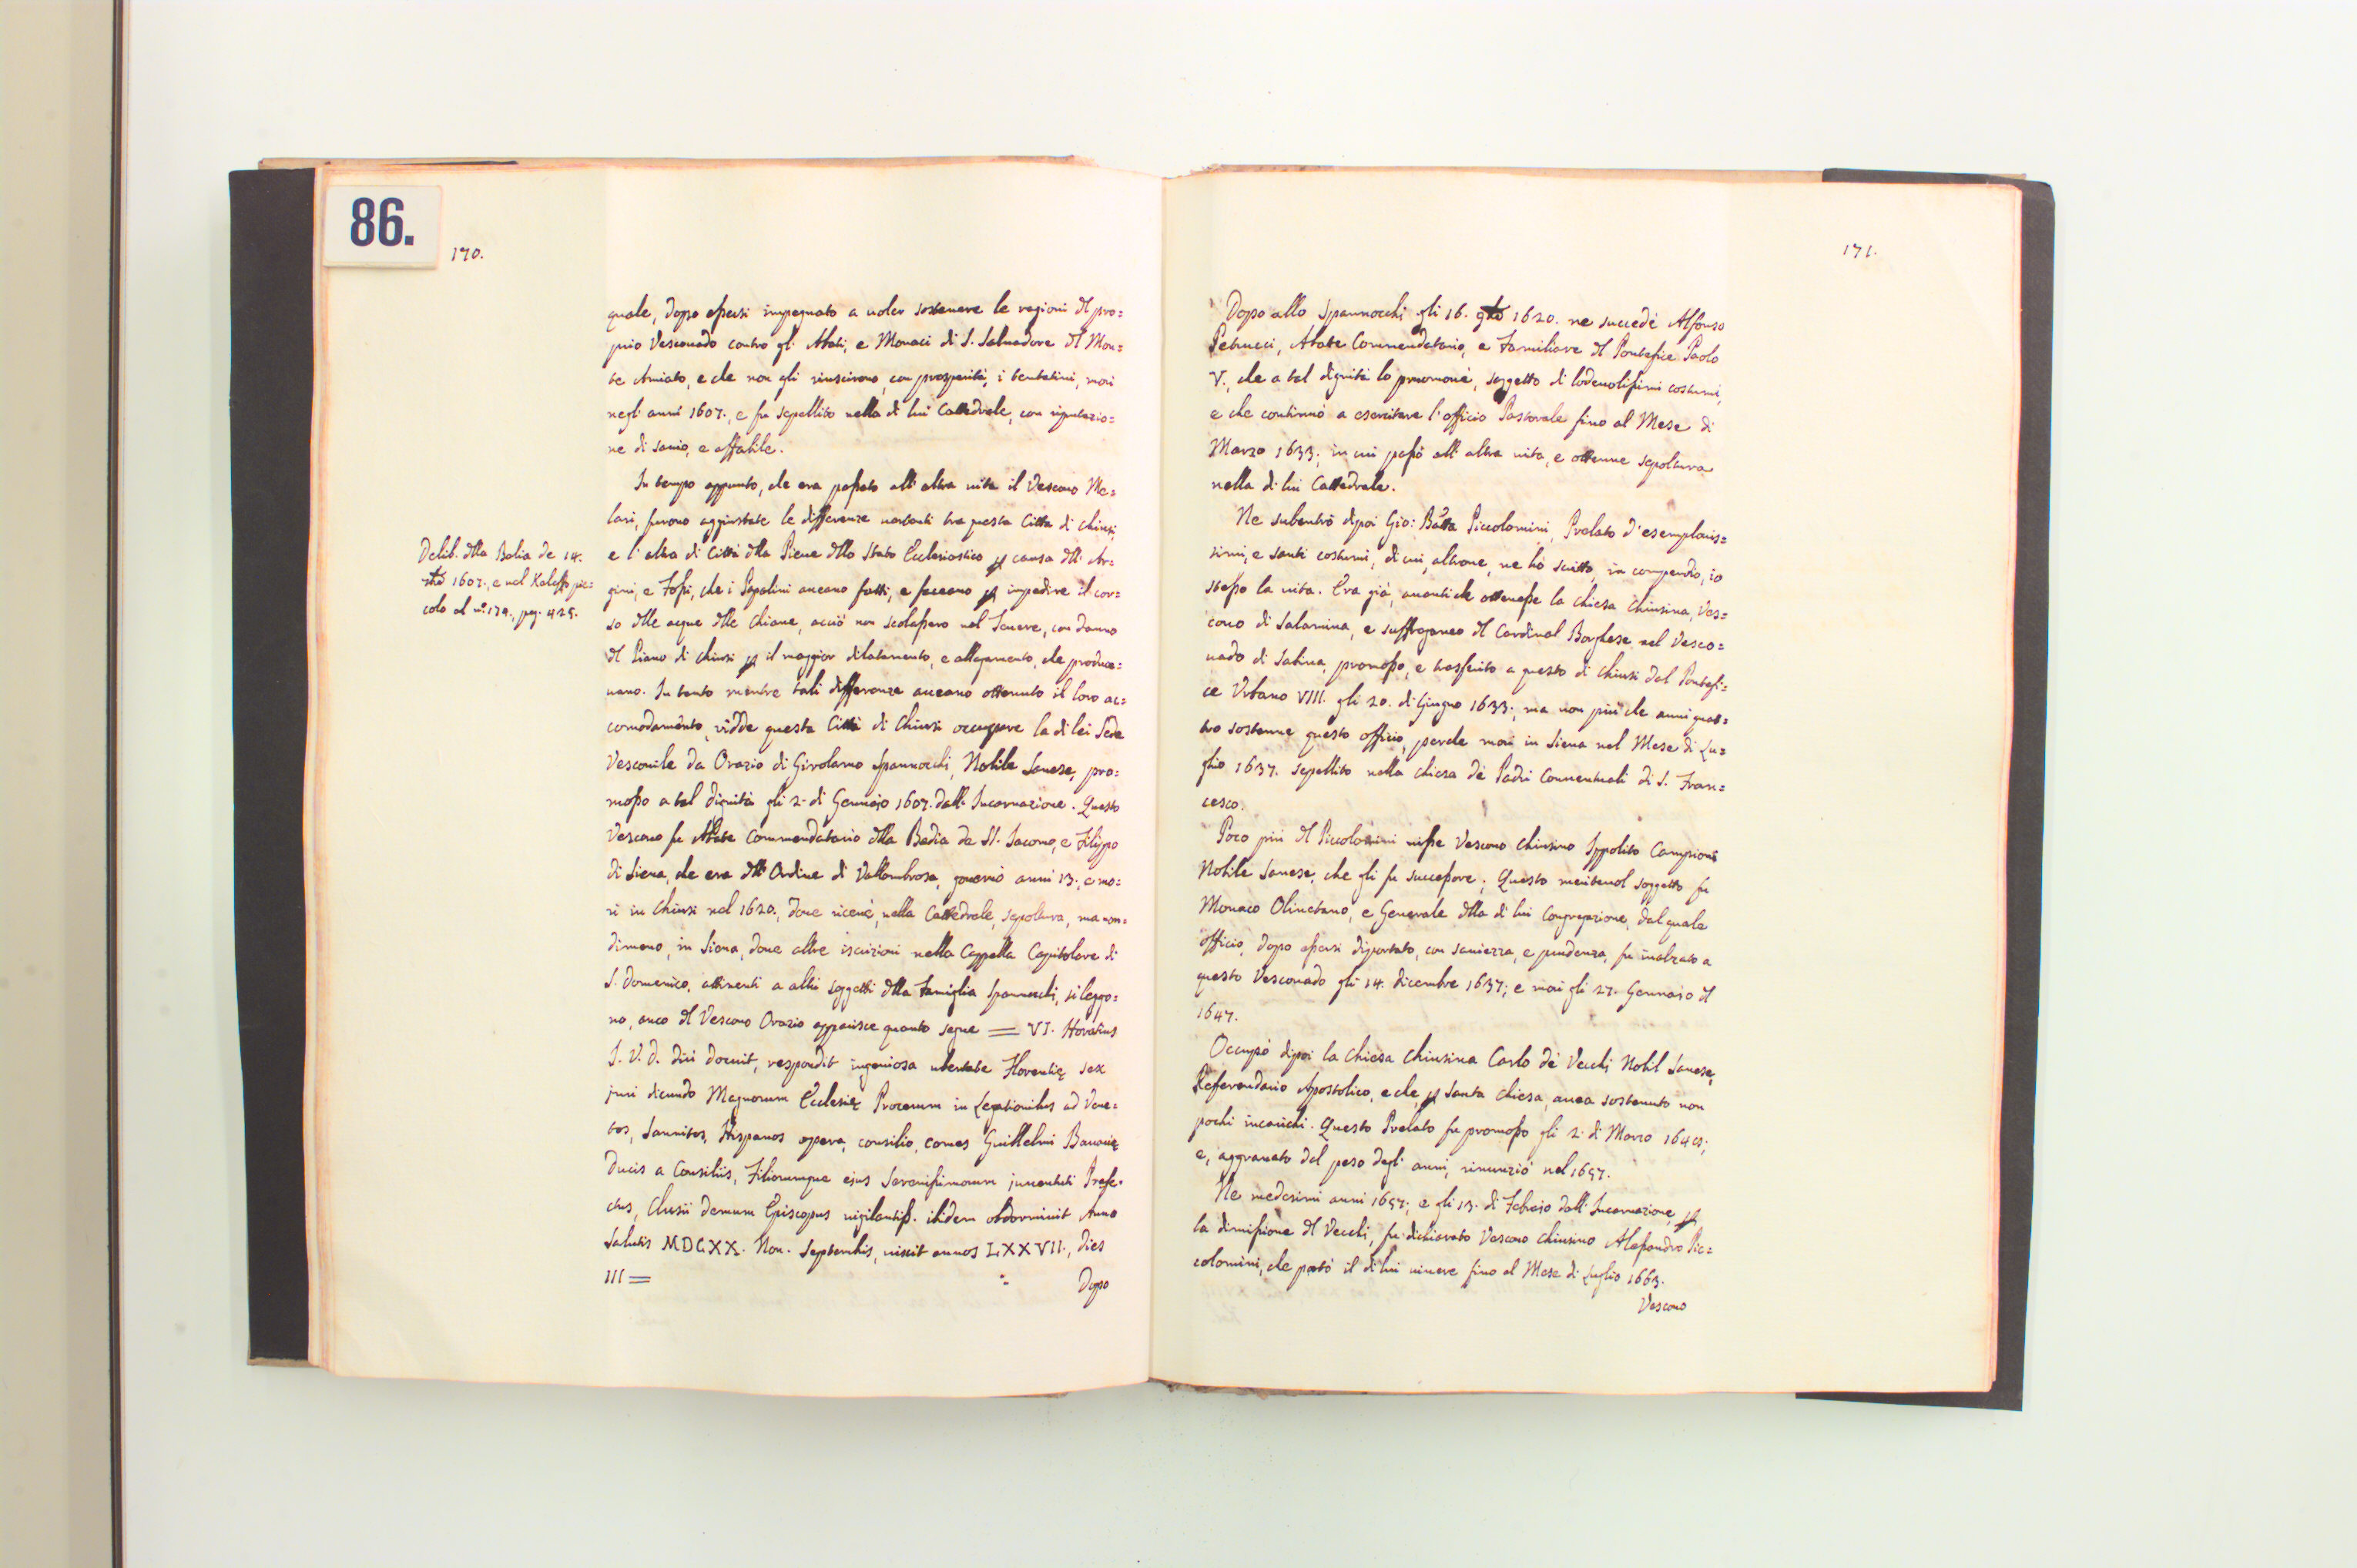 86.
170.
quale, dopo essersi impegnato a voler sostenere le ragioni dl pro=
prio Vescouado contro gl' Abati, e Monaci di S. Saluadore dl Mon=
te Amiato, e che non gli riuscirono, con prosperità, i tentatiui, morì
negl' anni 1607., e fu sepellito nella di lui Cattedrale, con riputazio=
ne di sauio, e affabile.
In tempo appunto, che era passato all' altra uita il Vescouo Me=
lari, furono aggiustate le differenze uertenti tra questa Città di Chiusi,
e l'altra di Città dlla Pieue dllo Stato Ecclesiastico p causa dll' Ar=
gini, e Fossi, che i Papalini aueano fatti, e faceano p impedire il cor=
so dlle acque dlle Chiane, acciò non scolassero nel Teuere, con danno
dl Piano di Chiusi p il maggior dilatamento, e allagamento, che produce=
uano. In tanto mentre tali differenze aueano ottenuto il loro ac=
comodamento, vidde questa Città di Chiusi occupare la di lei Sede
Vescouile da Orazio di Girolamo Spannocchi, Nobile Sanese, pro=
mosso a tal dignità gli 2. di Gennajo 1607. dall' Incarnazione. Questo
Vescouo fu Abate Commendatario dlla Badia de SS. Jacomo, e Filippo
di Siena, che era dll' Ordine di Vallombrosa, gouernò anni 13., e mo=
rì in Chiusi nel 1620., doue riceuè, nella Cattedrale, sepoltura, ma non=
dimeno, in Siena, doue altre iscrizioni nella Cappella Capitolare di
S. Domenico, attinenti a altri soggetti dlla famiglia Spannocchi, si leggo=
no, anco dl Vescouo Orazio apparisce quanto segue = VI. Horatius
I. V. D. diu docuit, respondit ingeniosa ubertate Florentię sex
juri dicundo Magnorum Ecclesię Procerum in Legationibus ad Vene=
tos, Samnites, Hispanos opera, consilio, comes Guillelmi Bauarię
Ducis a Consiliis, Filiorumque ejus Serenissimorum juuentuti Prefe=
ctus, Clusii demum Episcopus uigilantiss. ibidem obdormiuit Anno
Salutis MDCXX. Non. Septembis, uixit annos LXXVII., dies
III =
Dopo
Delib. dlla Balia de 14.
1607., e nel Kaleffo pic=
colo al n.° 179., pag. 425.
171.
Dopo allo Spannocchi gli 16. 9bre 1620. ne succedè Alfonso
Petrucci, Abate Commendatario, e Familiare dl Pontefice Paolo
V., che a tal dignità lo promouè, soggetto di lodeuolissimi costumi,
e che continuò a esercitare l'officio Pastorale fino al Mese di
Marzo 1633., in cui passò all' altra uita, e ottenne sepoltura
nella di lui Cattedrale.
Ne subentrò dipoi Gio: Batta Piccolomini, Prelato d'esemplaris=
simi, e santi costumi, di cui, altroue, ne hò scritto, in compendio, io
stesso la uita. Era già, auanti che ottenesse la Chiesa Chiusina, Ves=
couo di Salamina, e suffraganeo dl Cardinal Borghese nel Vesco=
uado di Sabina, promosso, e trasferito a questo di Chiusi dal Pontefi=
ce Urbano VIII. gli 20. di Giugno 1633., ma non più che anni quat=
tro sostenne questo officio, perche morì in Siena nel Mese di Lu=
glio 1637. sepellito nella Chiesa dè Padri Conuentuali di S. Fran=
cesco.
Poco più dl Piccolomini uisse Vescouo Chiusino Ippolito Campioni
Nobile Sanese, che gli fu successore; Questo meriteuol soggetto fu
Monaco Oliuetano, e Generale dlla di lui Congregazione, dal quale
officio, dopo essersi diportato, con sauiezza, e prudenza, fu inalzato a
questo Vescouado gli 14. dicembre 1637; e morì gli 27. Gennaio dl
1647.
Occupò dipoi la Chiesa Chiusina Carlo dè Vecchi Nobil Sanese,
Referendario Apostolico, e che, p Santa Chiesa, auea sostenuto non
pochi incarichi. Questo Prelato fu promosso gli 2. di Marzo 1648;
e, aggrauato dal peso degl' anni, rinunziò nel 1657.
Ne medesimi anni 1657; e gli 13. di Febrajo dall' Incarnazione, p
la dimissione dl Vecchi, fu dichiarato Vescouo Chiusino Alessandro Pic=
colomini, che portò il di lui uiuere fino al Mese di Luglio 1663.
Vescouo